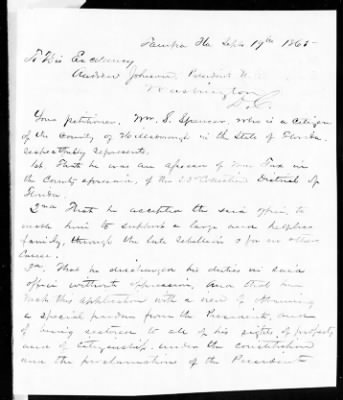 Tampa Fla Sept 19th 1865
To His Excellency
Andrew Johnson, President U.
Washington
D.C.
Your petitioner, Wm. S. Spencer, who is a citizen
of the County of Hillsborough in the State of Florida.
respectfully represents.
1st. That he was an assessor of War Tax in
the County aforesaid, of the Collection District of
Florida.
2nd That he accepted the said office, to
enable him to support a large and helpless
family, through the late rebellion & for no other
cause.
3rd. That he discharged his duties in said
office without oppression, and that he
this application with a view of obtaining
a special pardon from the President, and
of being restored to all of his rights of property
and of citizenship under the constitution
and the proclamation of the President